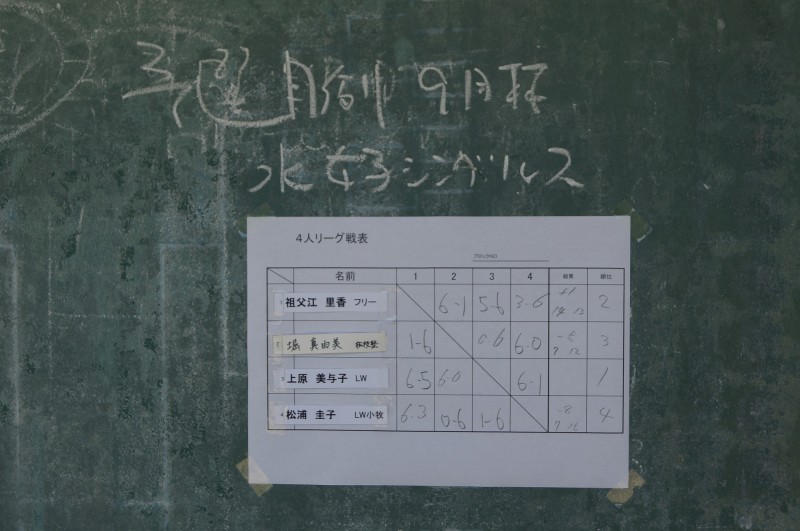 予選 9月杯
水 女子シングルス
4人リーグ戦表
ブロックNO
名前 1 2 3 4 結果 順位
1 祖父江 里香 フリー 6-1 5-6 3-6 +1 14 13 2
2 堀 真由美 桜枝塾 1-6 0-6 6-0 3
3 上原 美与子 LW 6-5 6-0 6-1 1
4 松浦 圭子 LW小牧 6-3 0-6 1-6 -8 7 4